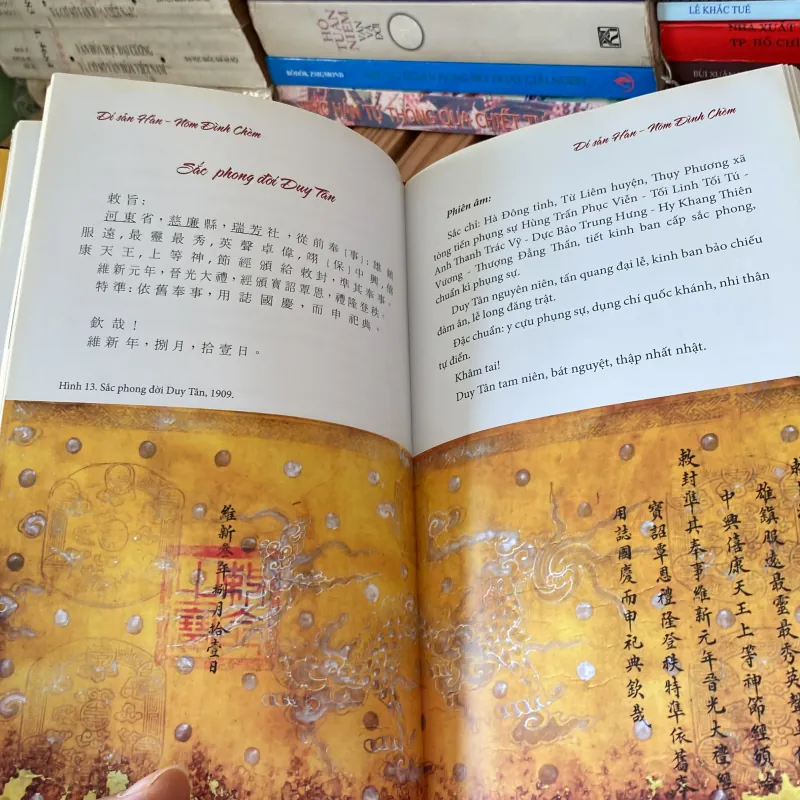 LÊ KHẮC TUÉ
NHÀ XUẤT
TP. HỒ CHÍ
BÙI XUÂN
VĂN VÀ ĐỜI
TỰ THÔNG QUA CHIẾT TỰ
Di sản Hán - Nôm Đình Chèm
Sắc phong đời Duy Tân
敕旨：
河東省，慈廉縣，瑞芳社，從前奉{事}；雄鎮
服遠,最靈最秀,英聲卓偉,翊{保}中興,僖
康天王,上等神,節經頒給敕封,準其奉事。
維新元年，晉光大禮，經頒寶詔覃恩，禮隆登秩。
特準：依舊奉事，用誌國慶，而申祀典。
欽哉！
維新年，捌月，拾壹日。
Hình 13. Sắc phong đời Duy Tân, 1909.
Di sản Hán - Nôm Đình Chèm
Phiên âm:
Sắc chỉ: Hà Đông tỉnh, Từ Liêm huyện, Thụy Phương xã
tòng tiền phụng sự Hùng Trấn Phục Viễn - Tối Linh Tối Tú -
Anh Thanh Trác Vỹ - Dực Bảo Trung Hưng - Hy Khang Thiên
Vương - Thượng Đẳng Thần, tiết kinh ban cấp sắc phong,
chuẩn kì phụng sự.
Duy Tân nguyên niên, tấn quang đại lễ, kinh ban bảo chiếu
đàm ân, lễ long đăng trật.
Đặc chuẩn: y cựu phụng sự, dụng chí quốc khánh, nhi thân
tự điển.
Khâm tai!
Duy Tân tam niên, bát nguyệt, thập nhất nhật.
雄鎮服遠最靈最秀英聲
中興僖康天王上等神節經頒給
敕封準其奉事維新元年晉光大禮經
寶詔覃恩禮隆登秩特準依舊奉
用誌國慶而申祀典欽哉
維新叁年捌月拾壹日